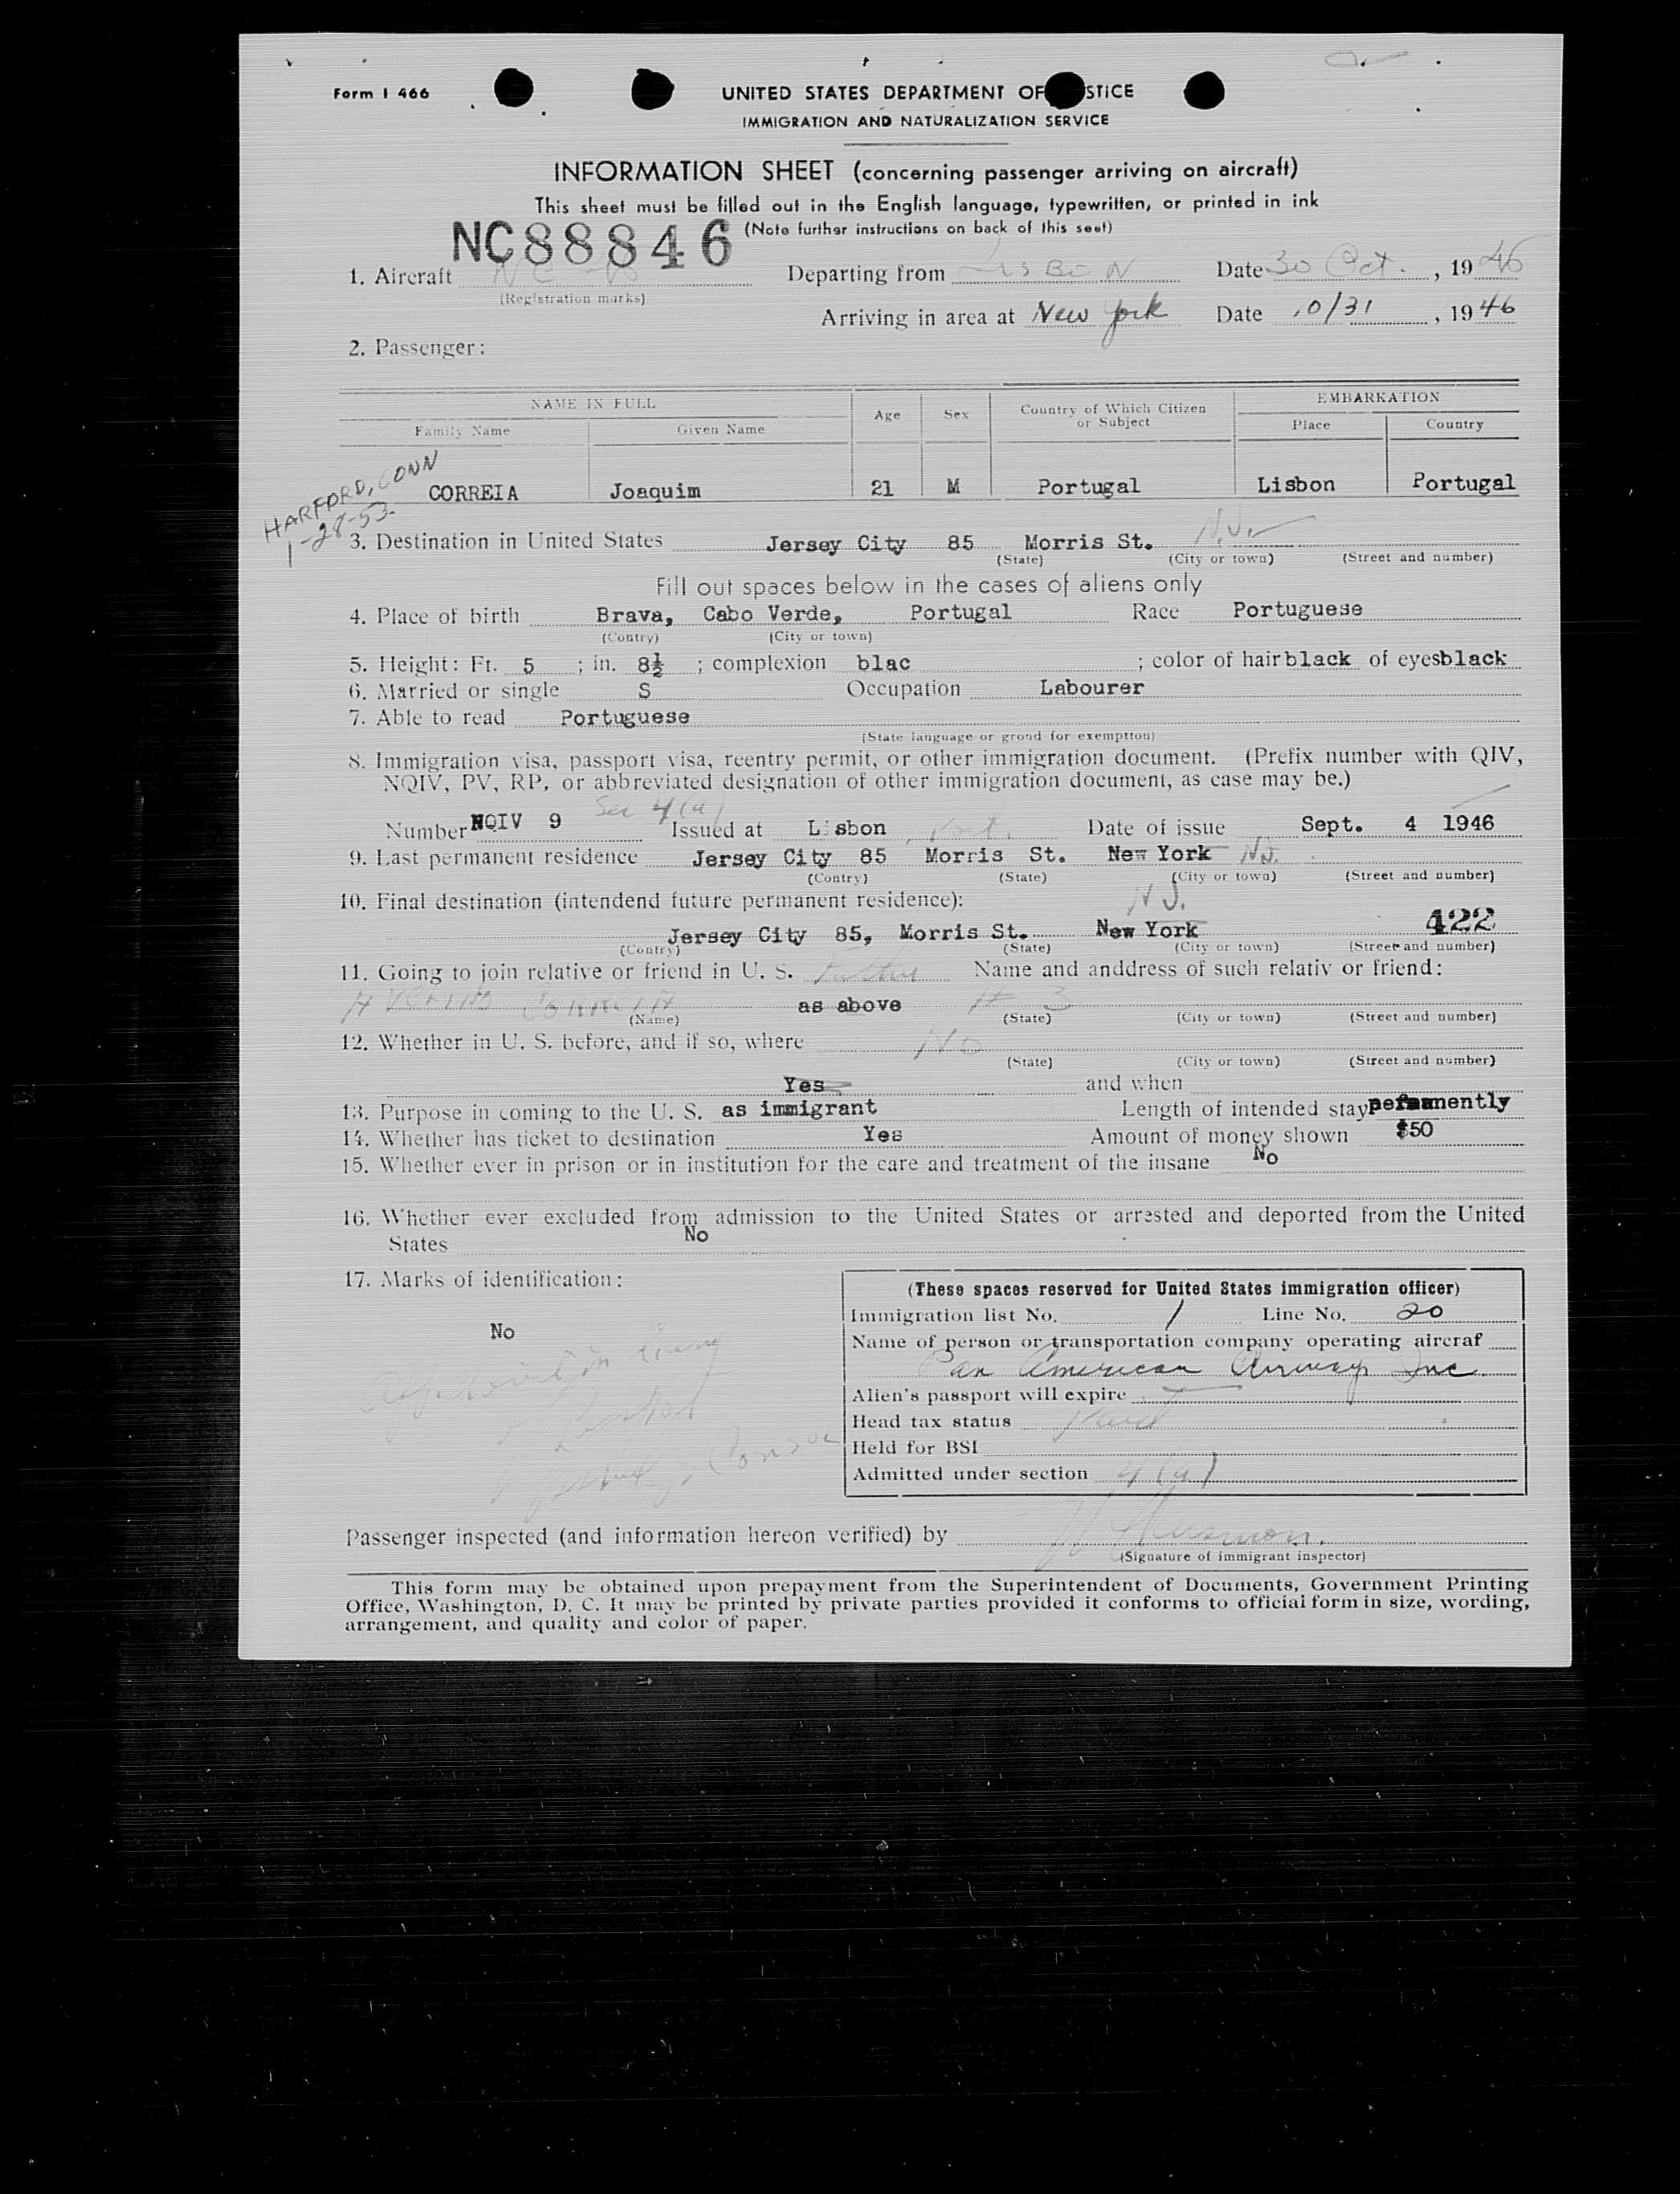 Form I 466
UNITED STATES DEPARTMENT OF STICE
IMMIGRATION AND NATURALIZATION SERVICE
INFORMATION SHEET (concerning passenger arriving on aircraft)
This sheet must be filled out in the English language, typewritten, or printed in ink
NC88846 (Note further instructions on back of this seet)
1. Aircraft NC Departing from LISBON Date 30 Oct. , 19 46
(Registration marks)
Arriving in area at New York Date 10/31 , 19 46
2. Passenger:
NAME IN FULL Age Sex Country of Which Citizen or Subject EMBARKATION
Family Name Given Name Place Country
HARFORD, CONN
1-28-53
CORREIA Joaquim 21 M Portugal Lisbon Portugal
3. Destination in United States Jersey City 85 Morris St. N.J.
(State) (City or town) (Street and number)
Fill out spaces below in the cases of aliens only
4. Place of birth Brava, Cabo Verde, Portugal Race Portuguese
(Contry) (City or town)
5. Height: Ft. 5 ; in. 8½ ; complexion blac ; color of hair black of eyes black
6. Married or single S Occupation Labourer
7. Able to read Portuguese
(State language or grond for exemption)
8. Immigration visa, passport visa, reentry permit, or other immigration document. (Prefix number with QIV,
NQIV, PV, RP, or abbreviated designation of other immigration document, as case may be.)
Sec 4(a)
Number NQIV 9 Issued at Lisbon Port. Date of issue Sept. 4 1946
9. Last permanent residence Jersey City 85 Morris St. New York N.J.
(Contry) (State) (City or town) (Street and number)
10. Final destination (intendend future permanent residence):
N J.
Jersey City 85, Morris St. New York 422
(Contry) (State) (City or town) (Street and number)
11. Going to join relative or friend in U. S. Father Name and anddress of such relativ or friend:
CORREIA as above # 3
(Name) (State) (City or town) (Street and number)
12. Whether in U. S. before, and if so, where No
(State) (City or town) (Street and number)
Yes and when
13. Purpose in coming to the U. S. as immigrant Length of intended stay permanently
14. Whether has ticket to destination Yes Amount of money shown $50
15. Whether ever in prison or in institution for the care and treatment of the insane No
16. Whether ever excluded from admission to the United States or arrested and deported from the United
States No
17. Marks of identification:
No
(These spaces reserved for United States immigration officer)
Immigration list No. 1 Line No. 20
Name of person or transportation company operating aircraf
Pan American Airways Inc.
Alien's passport will expire
Head tax status Paid
Held for BSI
Admitted under section 4(a)
Passenger inspected (and information hereon verified) by
(Signature of immigrant inspector)
This form may be obtained upon prepayment from the Superintendent of Documents, Government Printing
Office, Washington, D. C. It may be printed by private parties provided it conforms to official form in size, wording,
arrangement, and quality and color of paper.